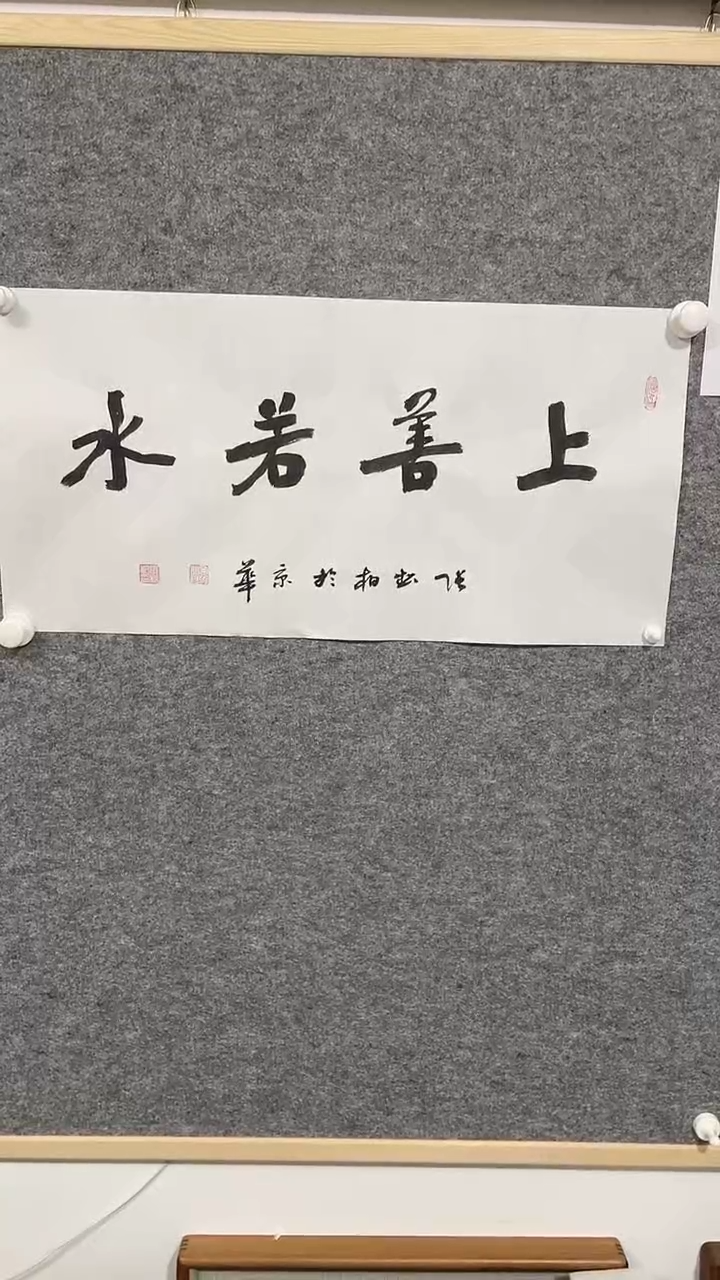 上善若水
张松柏於京華